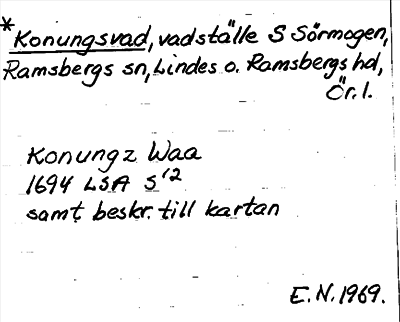 *Konungsvad, vadställe S Sörmogen,
Ramsbergs sn, Lindes o. Ramsbergs hd,
Ör. l.
Konungz Waa
1694 LSA S 12
samt beskr. till kartan
E. N. 1969.